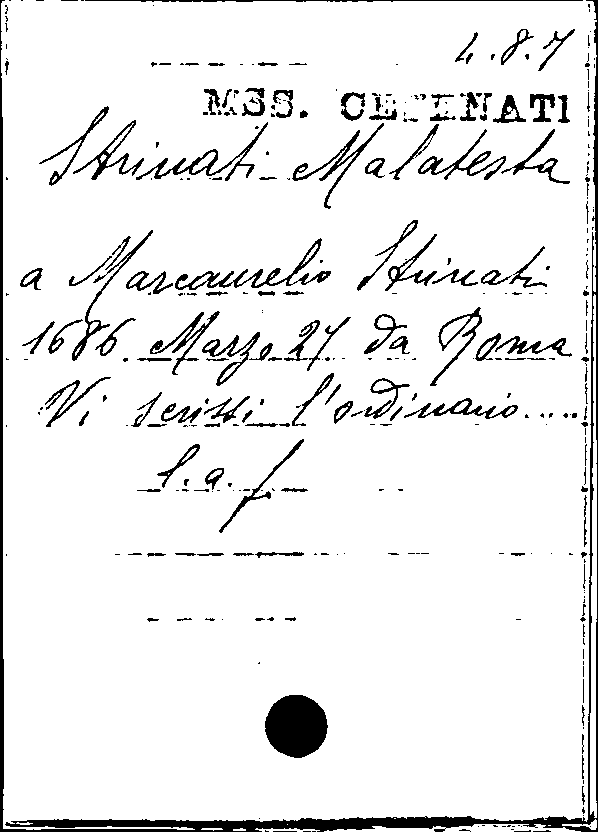 4.8.7
MSS. CESENATI
Strinati Malatesta
a Marcaurelio Strinati
1686. Marzo 27 da Roma
Vi scrissi l'ordinario....
l.a.f.